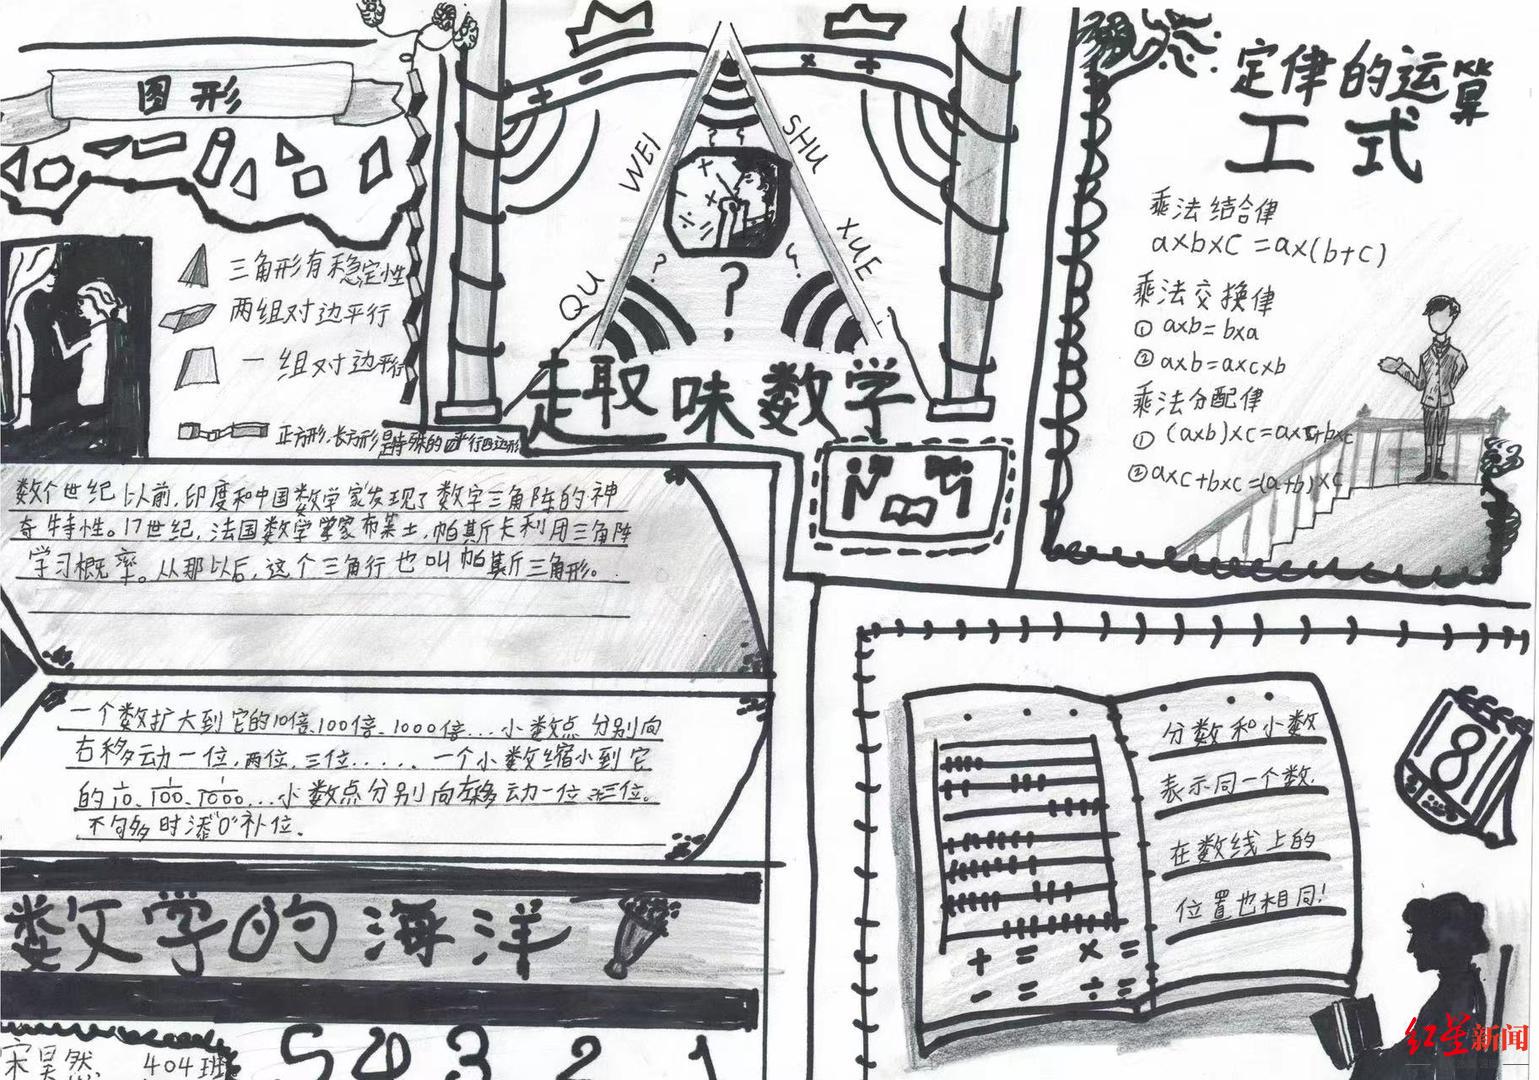 图形
三角形有稳定性
两组对边平行
一组对边平行
正方形,长方形是特殊的平行四边形
QU WEI SHU XUE
趣味数学
定律的运算
工式
乘法结合律
a×b×c=a×(b+c)
乘法交换律
① a×b=b×a
② a×b=a×c×b
乘法分配律
① (a×b)×c=a×c+b×c
② a×c+b×c=(a+b)×c
数个世纪以前,印度和中国数学家发现了数字三角阵的神
奇特性。17世纪,法国数学学家布莱士,帕斯卡利用三角阵
学习概率。从那以后,这个三角行也叫帕斯三角形。
一个数扩大到它的10倍、100倍、1000倍...小数点分别向
右移动一位,两位,三位..... 一个小数缩小到它
的1/10、1/100、1/1000...小数点分别向左移动一位 三位。
不句多时添"0"补位.
数学的海洋
宋昊然. 404班
5 4 3 2 1
+ = × =
- = ÷ =
分数和小数
表示同一个数.
在数线上的
位置也相同!
8
红星新闻